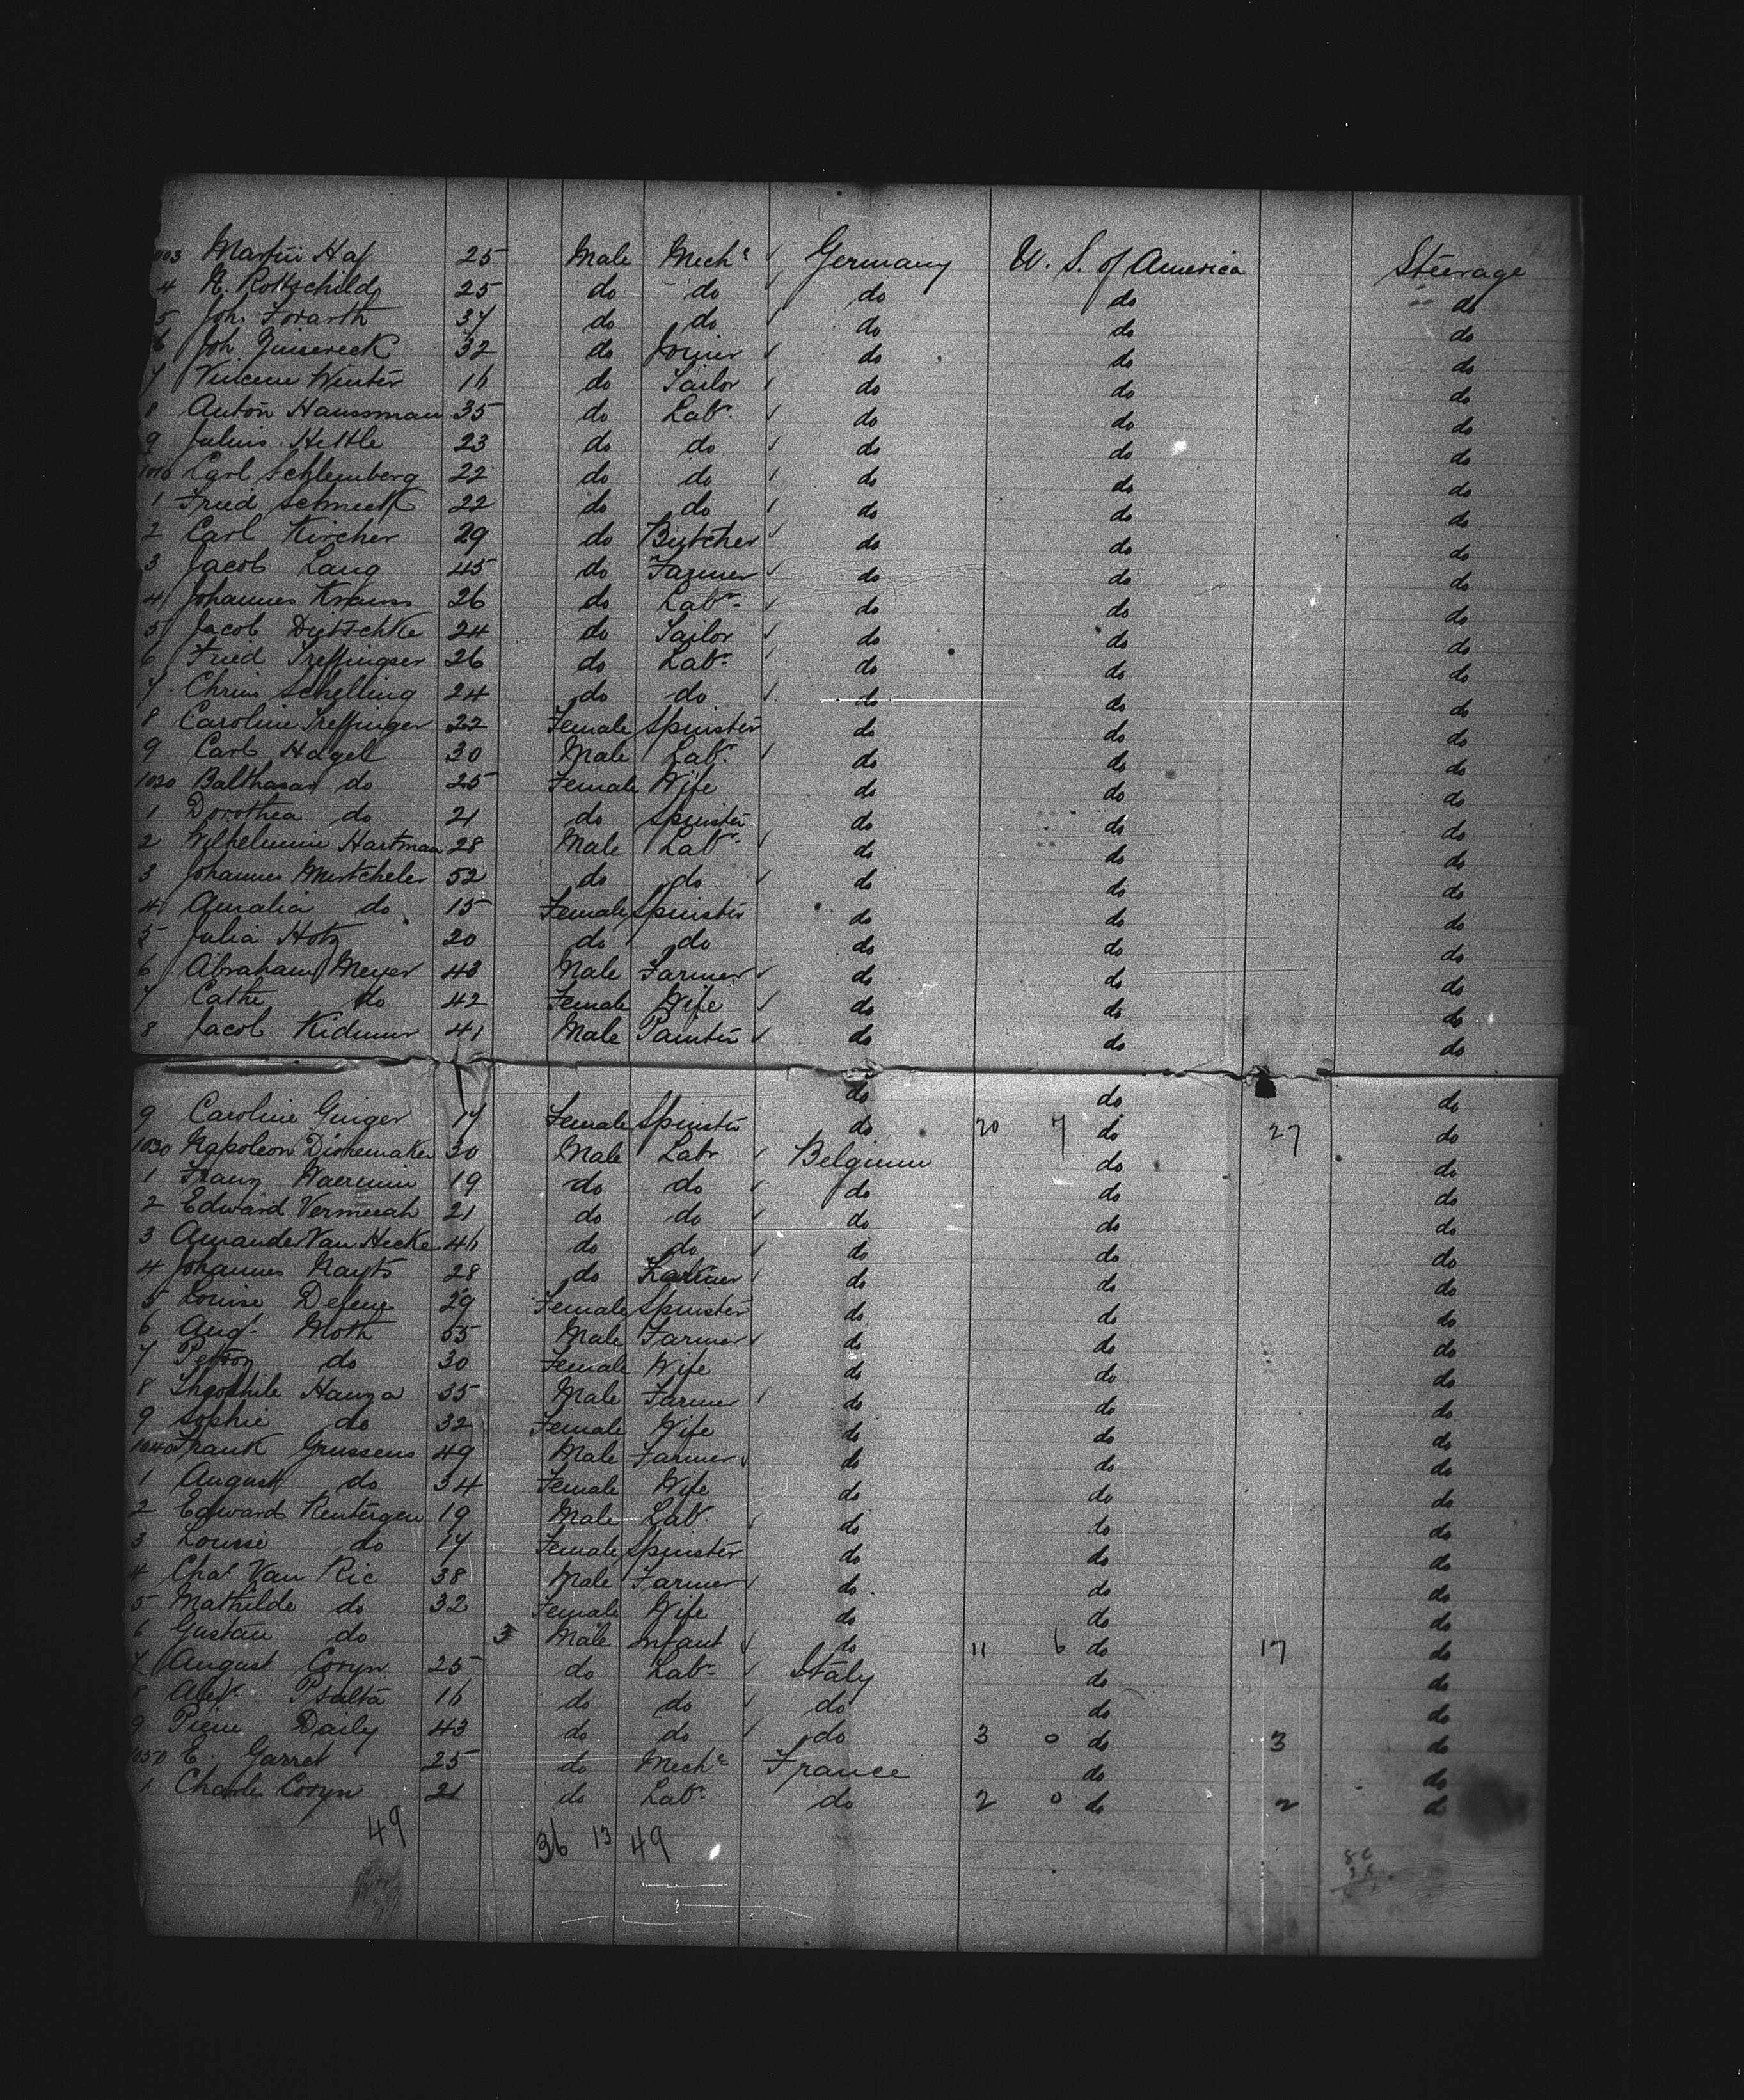 1003 Martin Haf 25 Male Mech^c Germany U. S. of America Steerage
4 N. Rottschild 25 do do do do do
5 Joh. Forarth 37 do do do do do
6 Joh. 32 do Joiner do do do
7 Winter 16 do Tailor do do do
8 Anton Haussman 35 do Lab^r do do do
9 Julius Hettle 23 do do do do do
1010 Carl Schlemberg 22 do do do do do
1 Fried Schmeck 22 do do do do do
2 Carl Kircher 29 do Butcher do do do
3 Jacob Lang 45 do Farmer do do do
4 Johannes Krauss 26 do Lab^r do do do
5 Jacob Dutschke 24 do Tailor do do do
6 Fried Treffingser 26 do Lab^r do do do
7 Chrin Schelling 24 do do do do do
8 Caroline Treffinger 22 Female Spinster do do do
9 Carl Hagel 30 Male Lab^r do do do
1020 Balthasar do 25 Female Wife do do do
1 Dorothea do 21 do Spinster do do do
2 Hartman 28 Male Lab^r do do do
3 Johannes 52 do do do do do
4 Amalia do 15 Female Spinster do do do
5 Julia Hotz 20 do do do do do
6 Abraham Meyer 43 Male Farmer do do do
7 Cathe do 42 Female Wife do do do
8 Jacob 41 Male Painter do do do
do do do
9 Caroline Ginger 17 Female Spinster do 20 7 do 27 do
1030 Napoleon 30 Male Labr Belgium do do
1 Franz 19 do do do do do
2 Edward 21 do do do do do
3 Amander Van Hecke 46 do do do do do
4 Johannes Nayts 28 do Farmer do do do
5 Louise 29 Female Spinster do do do
6 Aug^t Moth 55 Male Farmer do do do
7 do 30 Female Wife do do do
8 Theophile Hanza 35 Male Farmer do do do
9 Sophie do 32 Female Wife do do do
1040 Frank Gussens 49 Male Farmer do do do
1 August do 34 Female Wife do do do
2 Edward Rentergen 19 Male Lab^r do do do
3 Louise do 17 Female Spinster do do do
4 Cha^s Van Ric 38 Male Farmer do do do
5 Mathilde do 32 Female Wife do do do
6 Gustau do 3 Male Infant do 11 6 do 17 do
7 August Coryn 25 do Lab^r Italy do do
8 Alex^r Psalta 16 do do do do do
9 Pierre Daily 43 do do do 3 0 do 3 do
1050 E. Garret 25 do Mech^c France do do
1 Charle Coryn 21 do Lab^r do 2 0 do 2 do
49 36 13 49